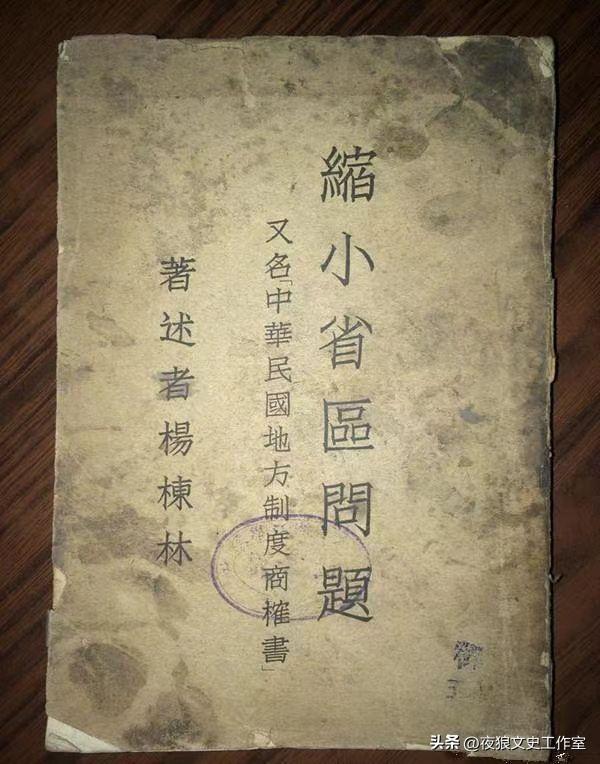 縮小省區問題
又名「中華民國地方制度商榷書」
著述者楊棟林
头条 @夜狼文史工作室